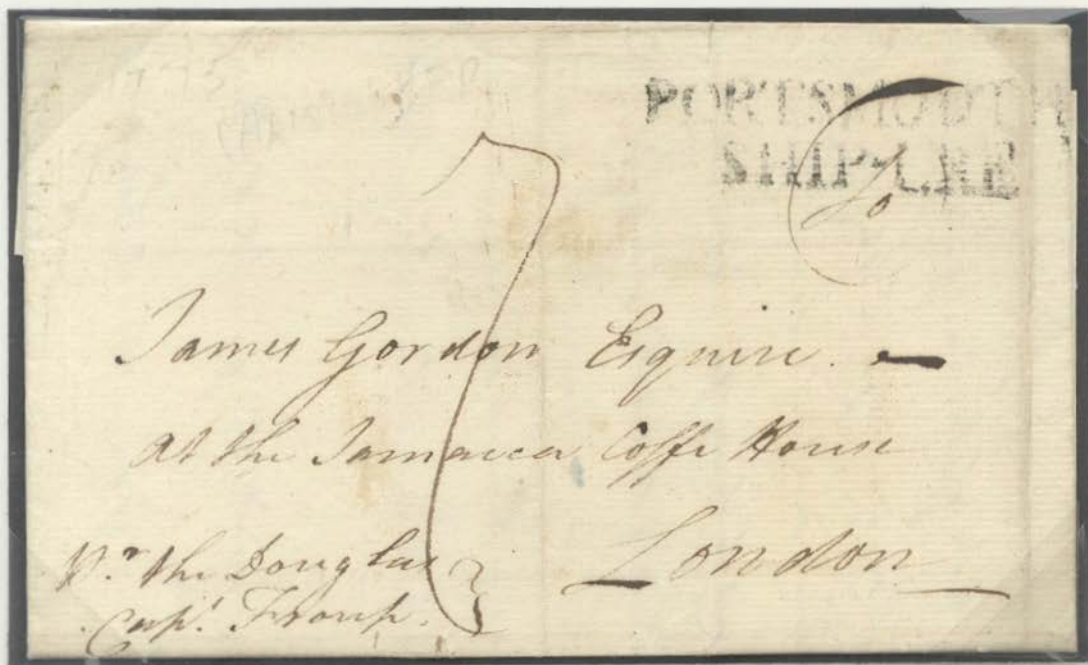 PORTSMOUTH
SHIP-LRE
James Gordon Esquire.
at the Jamaica Coffe House
London
Pr. the Douglas
Capt. Troup.